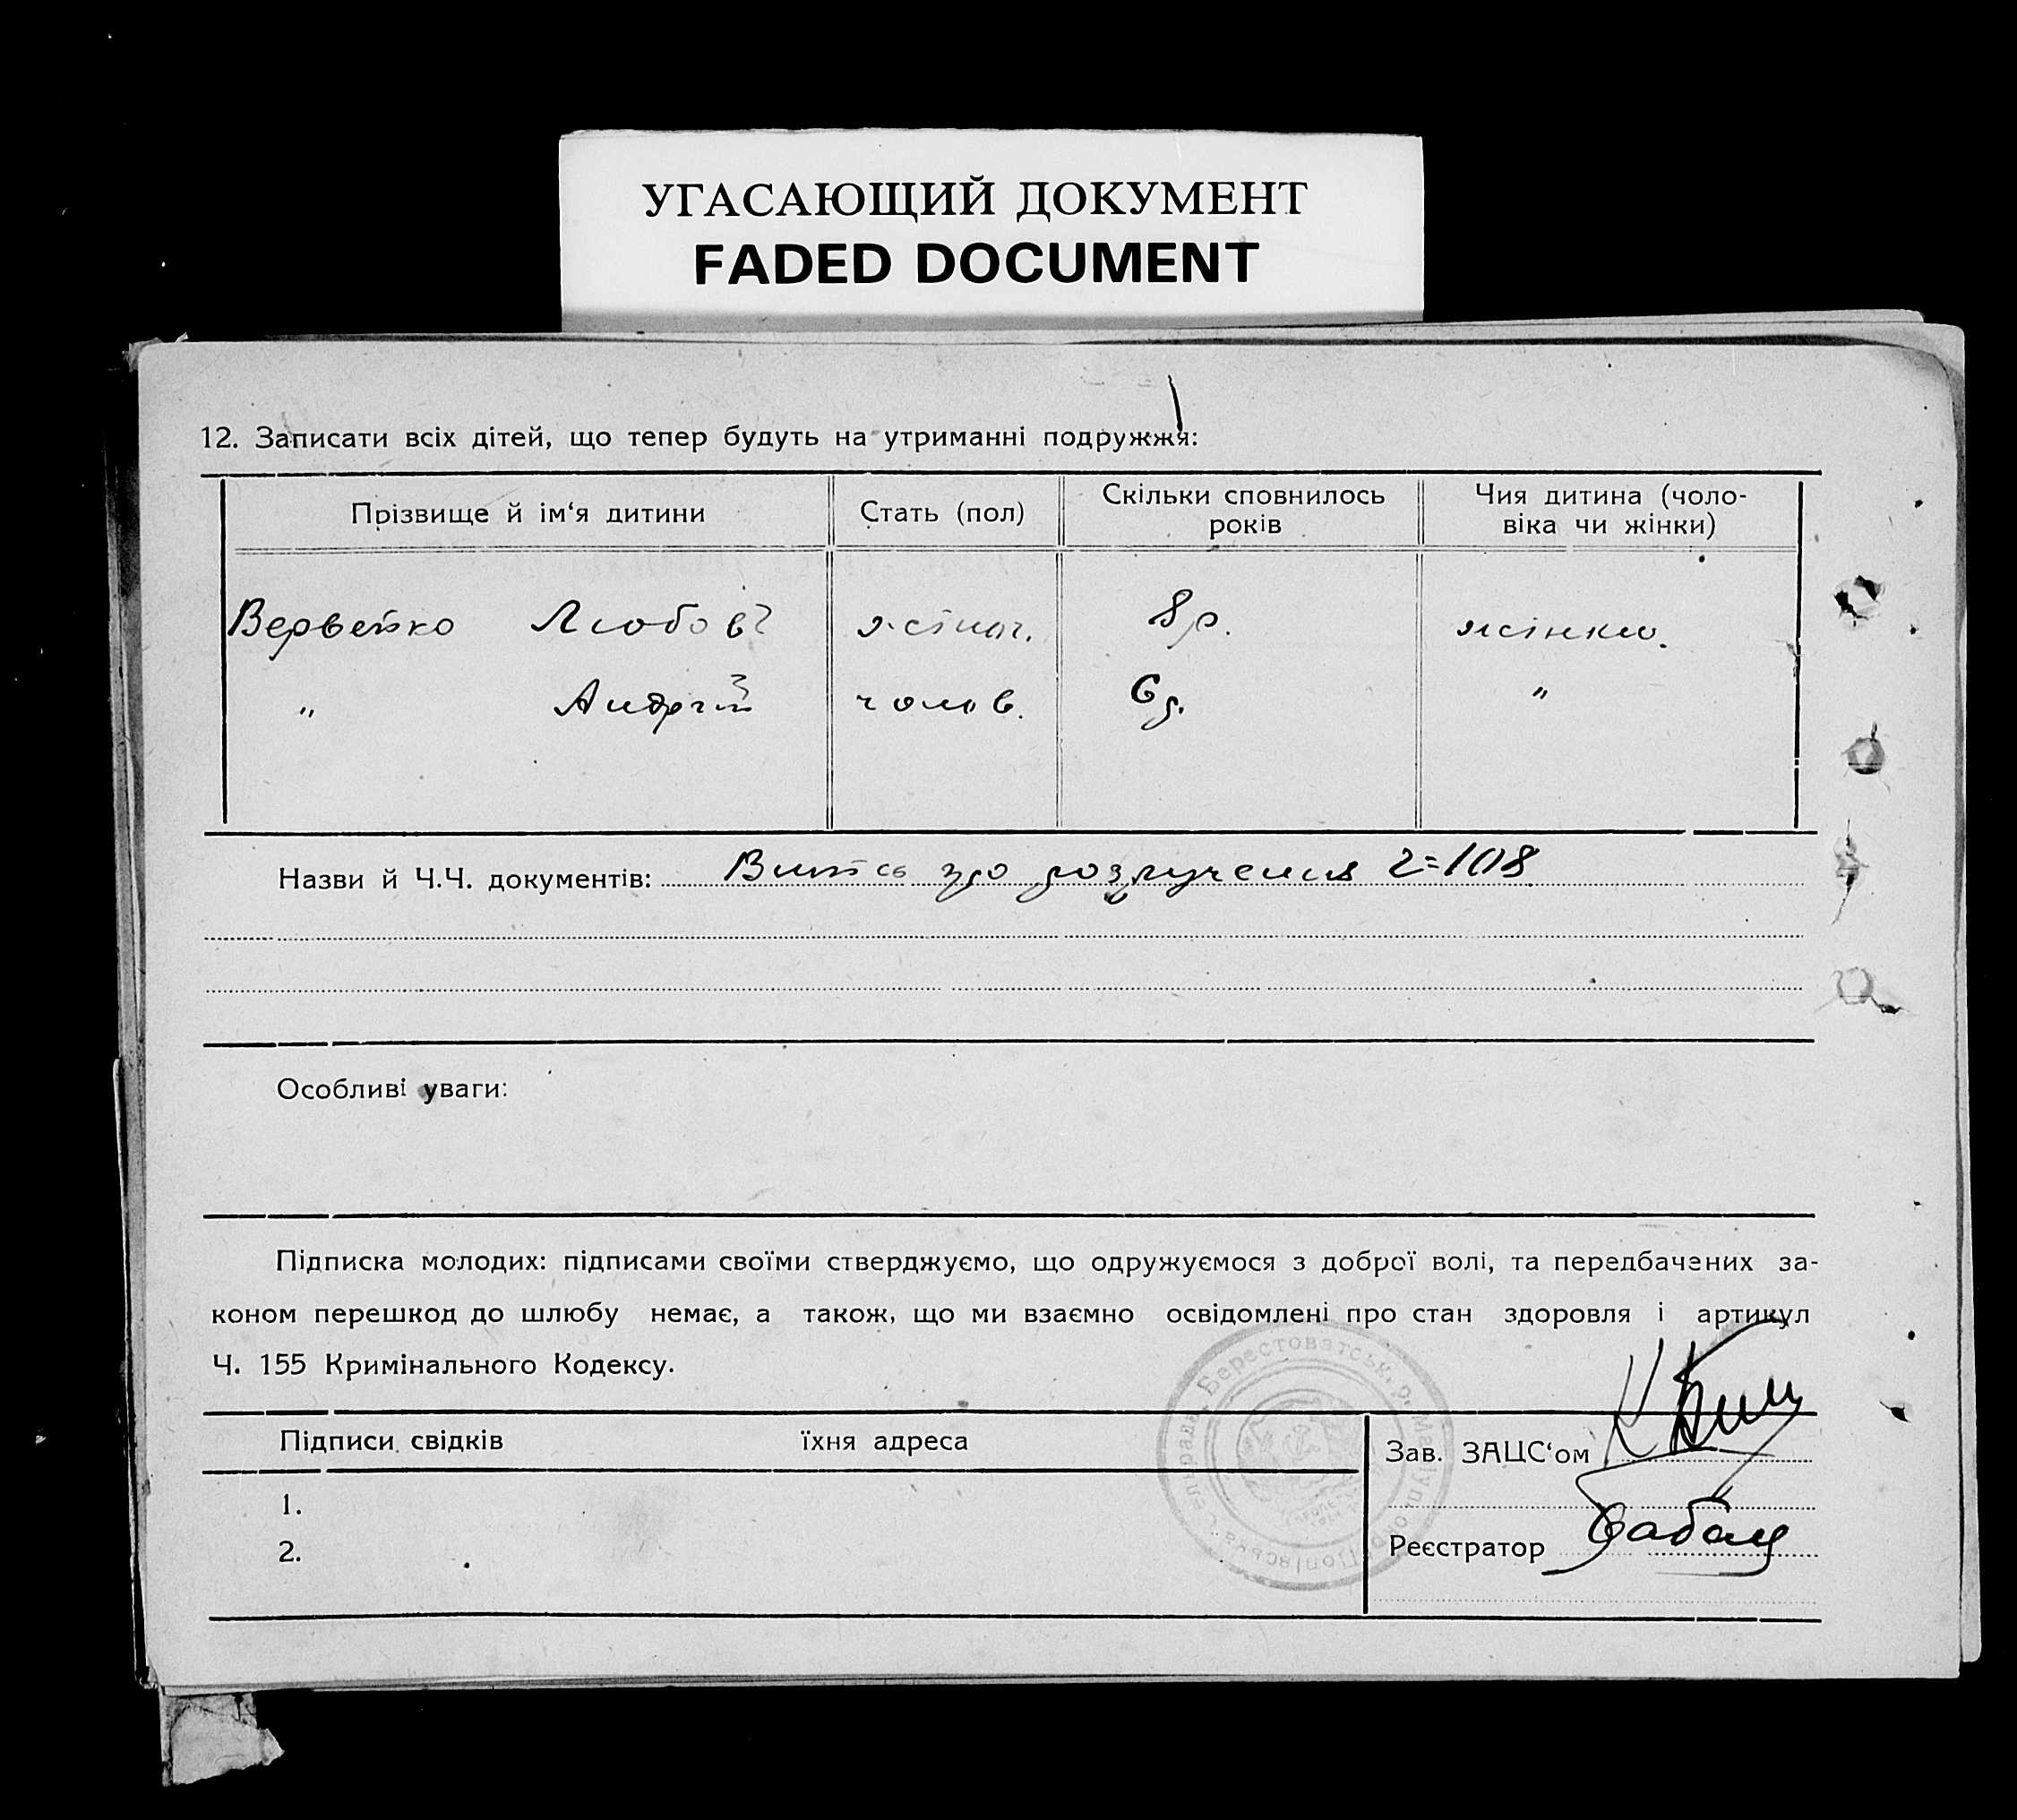 УГАСАЮЩИЙ ДОКУМЕНТ
FADED DOCUMENT
12. Записати всіх дітей, що тепер будуть на утриманні подружжя:
Прізвище й ім‘я дитини Стать (пол) Скільки сповнилось років Чия дитина (чоло-віка чи жінки)
Вервейко Любовь жіноч. 8 р. жінки.
„ Андрій чолов. 6 р. „
Назви й Ч.Ч. документів: Витяг про розлучення ч=108
Особливі уваги:
Підписка молодих: підписами своїми стверджуємо, що одружуємося з доброї волі, та передбачених за-
коном перешкод до шлюбу немає, а також, що ми взаємно освідомлені про стан здоровля і артикул
Ч. 155 Кримінального Кодексу.
Підписи свідків їхня адреса
Зав. ЗАЦС‘ом
1.
2.
Реєстратор
Берестоватськ. р.